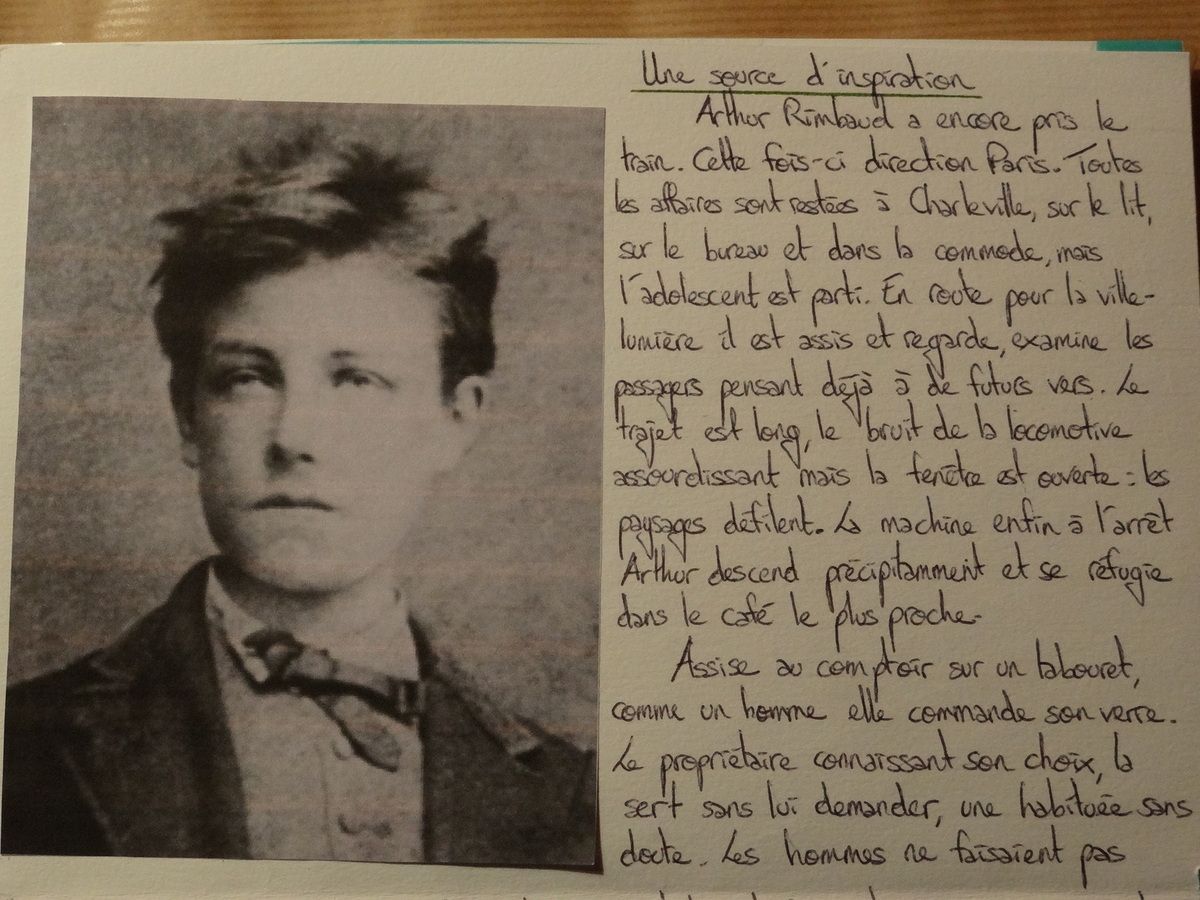 Une source d'inspiration
Arthur Rimbaud a encore pris le
train. Cette fois-ci direction Paris. Toutes
les affaires sont restées à Charleville, sur le lit,
sur le bureau et dans la commode, mais
l'adolescent est parti. En route pour la ville-
lumière il est assis et regarde, examine les
passagers pensant déjà à de futurs vers. Le
trajet est long, le bruit de la locomotive
assourdissant mais la fenêtre est ouverte : les
paysages défilent. La machine enfin à l'arrêt
Arthur descend précipitamment et se réfugie
dans le café le plus proche.
Assise au comptoir sur un tabouret,
comme un homme elle commande son verre.
Le propriétaire connaissant son choix, la
sert sans lui demander, une habituée sans
doute. Les hommes ne faisaient pas